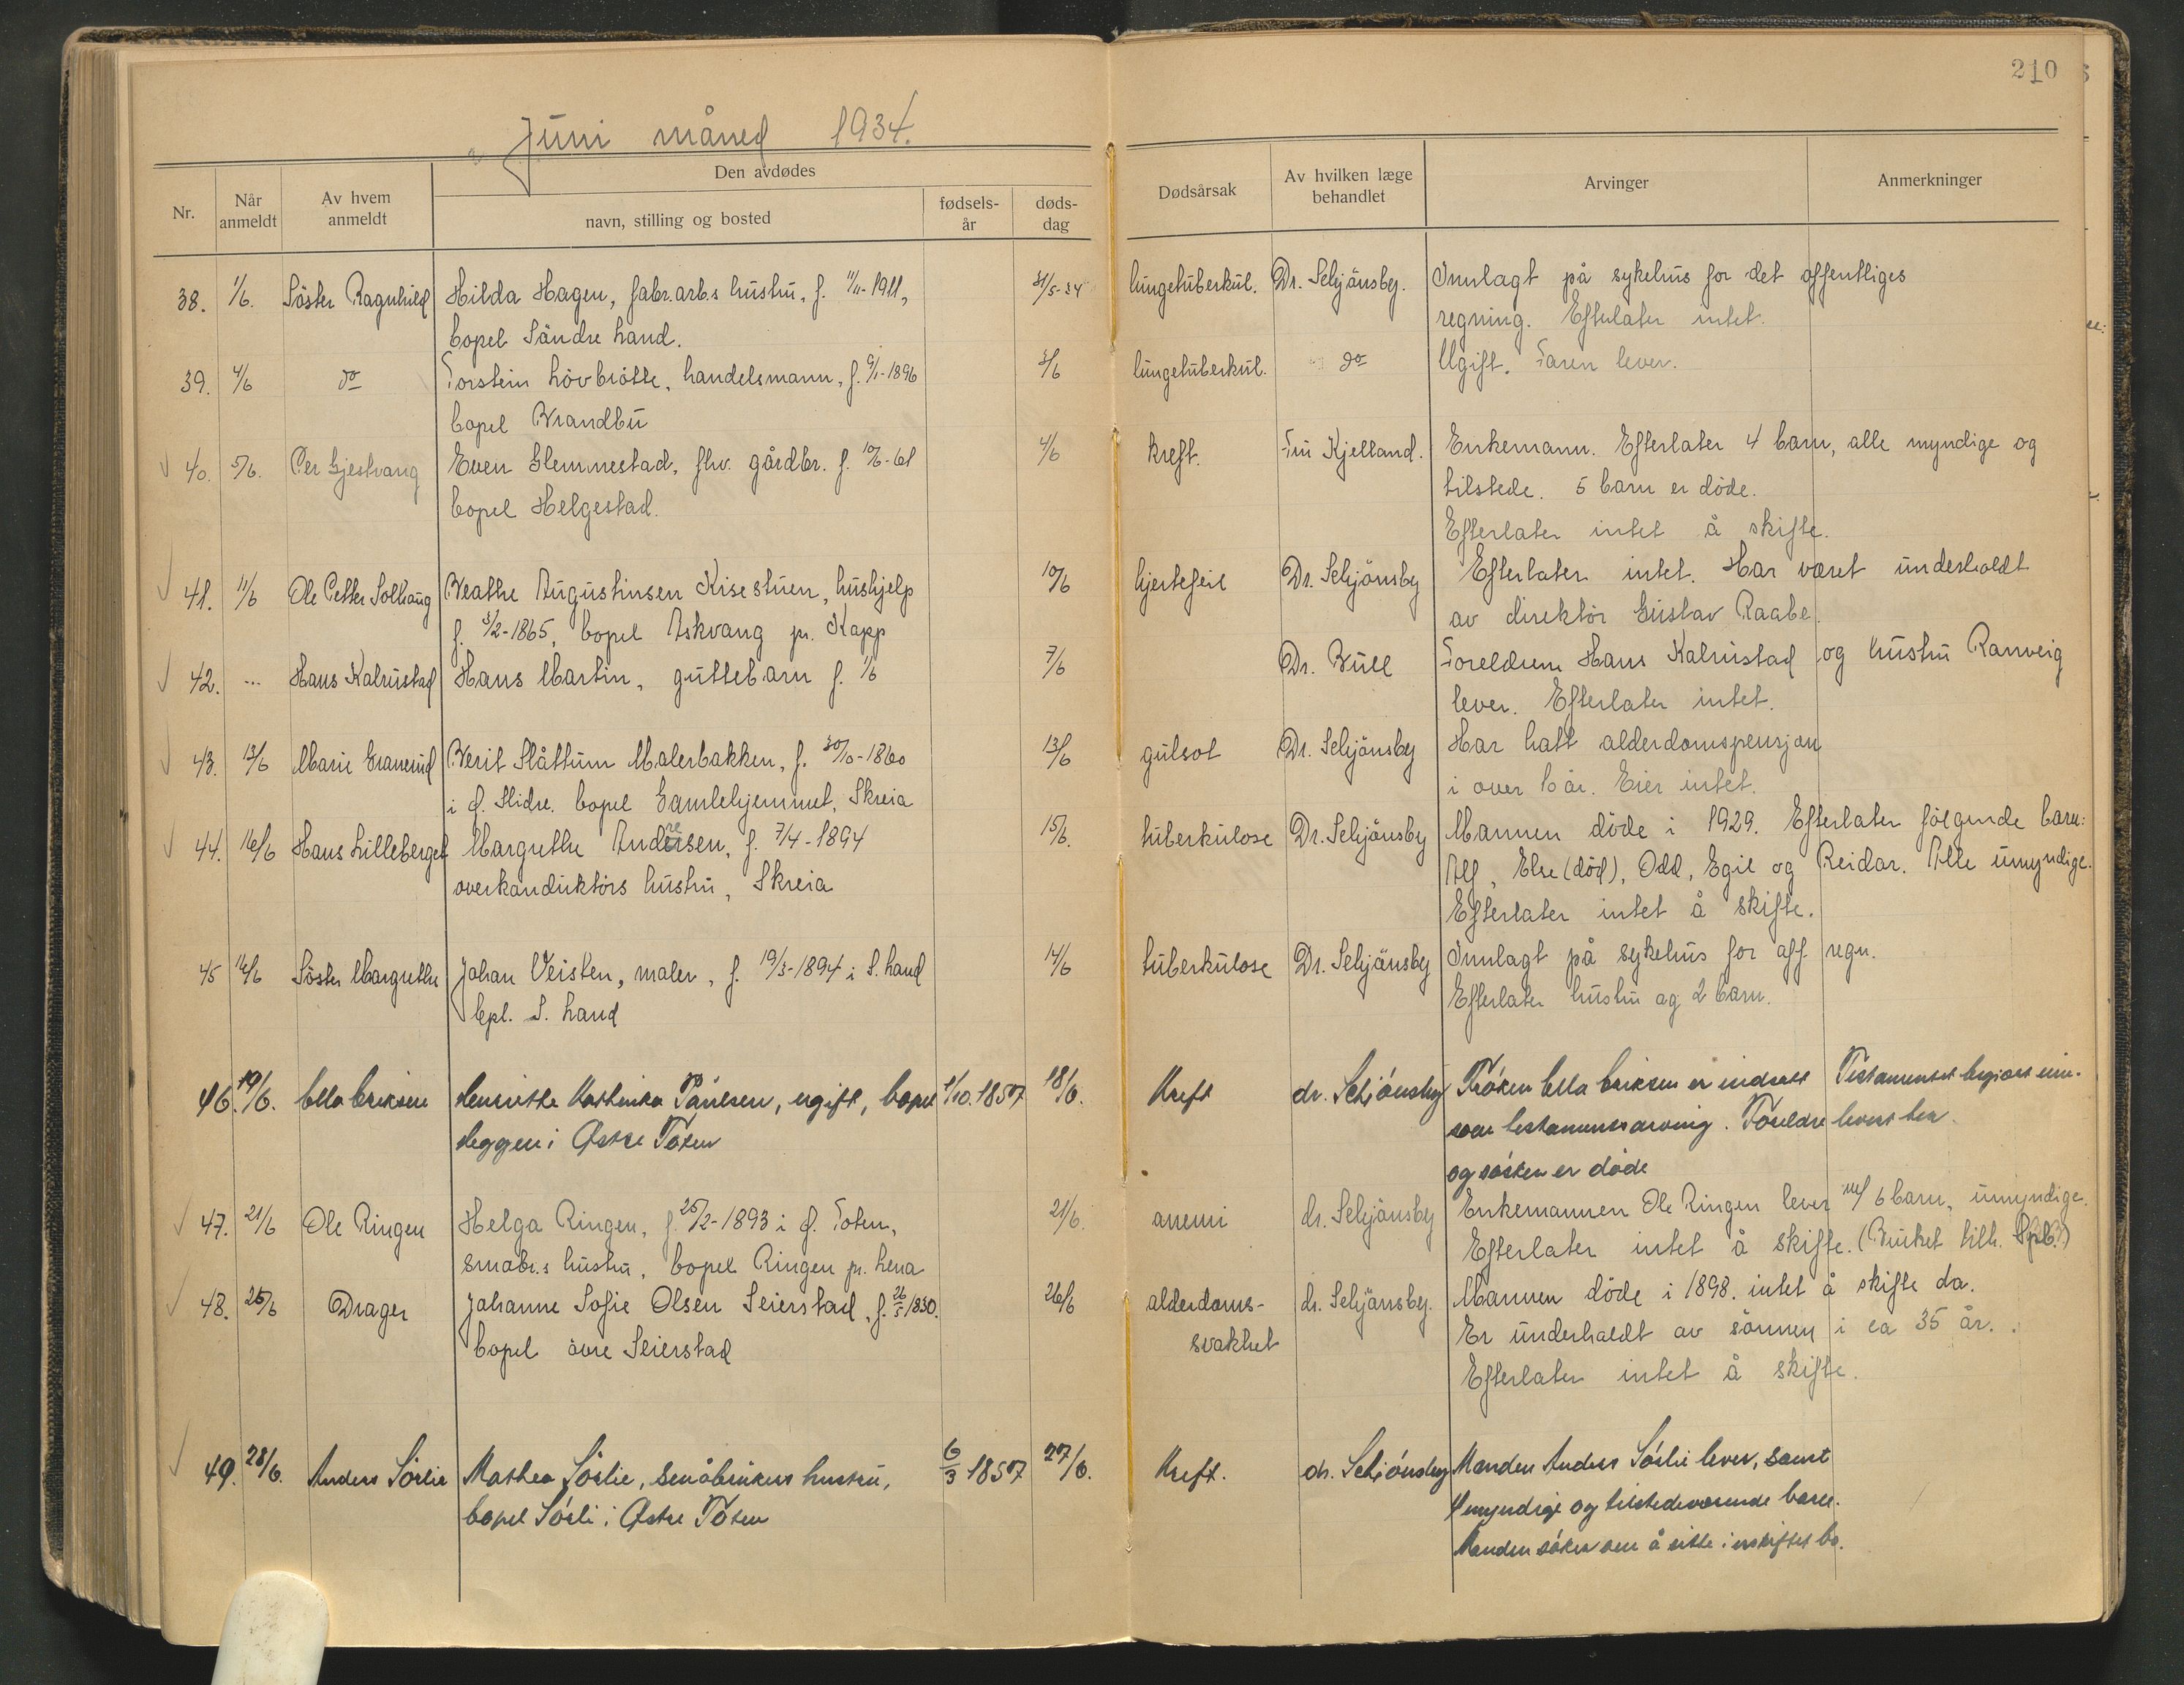 210
Juni måned 1934.
Nr.
Når anmeldt
Av hvem anmeldt
Den avdødes
navn, stilling og bosted
fødsels-år
døds-dag
Dødsårsak
Av hvilken læge behandlet
Arvinger
Anmerkninger
38. 1/6. Söster Ragnhild Hilda Hagen, fabr.arb.s hustru, f. 11/11-1911, 31/5-34 lungetuberkul. Dr. Schjönsby. Innlagt på sykehus for det offentliges
bopel Söndre Land. regning. Efterlater intet.
39. 4/6 do Torstein Lövbrötte, handelsmann, f. 9/1-1896 3/6 lungetuberkul. do Ugift. Faren lever.
bopel Brandbu
40. 5/6. Per Gjestvang Even Glemmestad, fhv. gårdbr. f. 10/6-61 4/6 kreft. Fru Kjelland. Enkemann. Efterlater 4 barn, alle myndige og
bopel Helgestad. tilstede. 5 barn er döde.
Efterlater intet å skifte.
41. 11/6 Ole Petter Solhaug Beathe Augustinsen Kisestuen, hushjelp 10/6 hjertefeil Dr. Schjönsby Efterlater intet. Har været underholdt
f. 3/2-1865, bopel Askvang pr. Kapp av direktör Gustav Raabe.
42. ... Hans Kalrustad Hans Martin, guttebarn f. 1/6 7/6 Dr. Bull Foreldrene Hans Kalrustad og hustru Ranveig
lever. Efterlater intet.
43. 13/6 Marie Granerud Berit Slåttum Malerbakken, f. 30/10-1860 13/6 gulsot Dr. Schjönsby Har hatt alderdomspensjon
i Ö. Slidre. bopel Gamlehjemmet, Skreia i over 10 år. Eier intet.
44. 16/6 Hans Lilleberget Margrethe Andresen, f. 7/4-1894 15/6. tuberkulose Dr. Schjönsby Mannen döde i 1929. Efterlater fölgende barn:
overkonduktörs hustru, Skreia Alf, Else (död), Odd, Egil og Reidar. Alle umyndige.
Efterlater intet å skifte.
45 16/6 Söster Margrethe Johan Veisten, maler, f. 19/3-1894 i S. Land 14/6 tuberkulose Dr. Schjönsby Innlagt på sykehus for off. regn.
bpl. S. Land Efterlater hustru og 2 barn.
46. 19/6. Ella Eriksen Henriette Paulsen, ugift, bopel 1/10.1857 18/6. Kreft dr. Schiönsby Fröken Ella Eriksen er indsatt
Heggen i Østre Toten som testamentsarving. Foreldre
og sösken er döde
47. 21/6 Ole Ringen Helga Ringen, f. 25/2-1893 i Ö. Toten, 21/6. anemi dr. Schjönsby Enkemannen Ole Ringen lever m/ 6 barn, umyndige.
småbr.s hustru, bopel Ringen pr. Lena Efterlater intet å skifte. (Bruket tilh.
48. 26/6 Drager Johanne Sofie Olsen Seierstad, f. 26/5 1830. 26/6 alderdoms- dr. Schjönsby. Mannen döde i 1898. intet å skifte da.
bopel övre Seierstad svakhet Er underholdt av sönnen i ca 35 år.
Efterlater intet å skifte.
49. 28/6. Anders Sörlie Mathea Sörlie, småbrukers hustru, 6/3 1857 27/6. Kreft. dr. Schiönsby Manden Anders Sörlie lever, samt
bopel Sörli i Østre Toten 4 myndige og tilstedeværende barn.
Manden söker om å sitte i uskiftet bo.